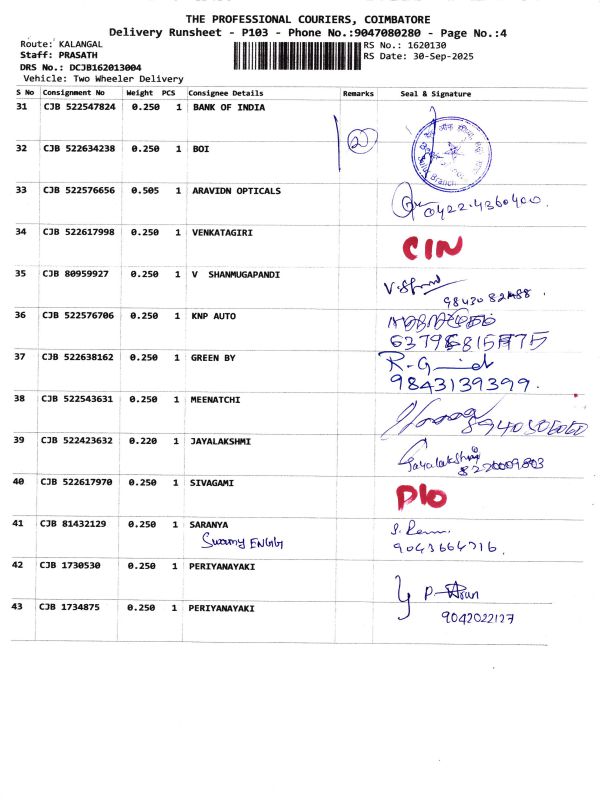 THE PROFESSIONAL COURIERS, COIMBATORE
Delivery Runsheet - P103 - Phone No.:9047080280 - Page No.:4
Route: KALANGAL
RS No.: 1620130
Staff: PRASATH
RS Date: 30-Sep-2025
DRS No.: DCJB162013004
Vehicle: Two Wheeler Delivery
S No Consignment No Weight PCS Consignee Details Remarks Seal & Signature
31 CJB 522547824 0.250 1 BANK OF INDIA
32 CJB 522634238 0.250 1 BOI 2
33 CJB 522576656 0.505 1 ARAVIDN OPTICALS
0422-4360400.
34 CJB 522617998 0.250 1 VENKATAGIRI CIN
35 CJB 80959927 0.250 1 V SHANMUGAPANDI
36 CJB 522576706 0.250 1 KNP AUTO
37 CJB 522638162 0.250 1 GREEN BY
9843139399.
38 CJB 522543631 0.250 1 MEENATCHI
39 CJB 522423632 0.220 1 JAYALAKSHMI Jayalakshmi
8220009803
40 CJB 522617970 0.250 1 SIVAGAMI P10
41 CJB 81432129 0.250 1 SARANYA
Swamy ENGG
9043664716.
42 CJB 1730530 0.250 1 PERIYANAYAKI P. Arun
43 CJB 1734875 0.250 1 PERIYANAYAKI 9042022127